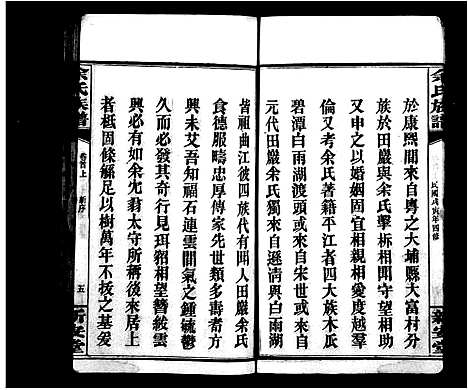 余氏族譜
民國戊寅年四修
新安堂
於康熙間來自粵之大埔縣大富村分
族於田嚴與余氏擊柝相聞守望相助
又申之以婚姻固宜相親相愛度越羣
倫又考余氏著籍平江者四大族木瓜
碧潭白雨湖渡頭或來自宋或來自明
元代田嚴余氏獨來自遜清與白雨湖
皆祖曲江彼四族代有聞人田嚴余氏
食德服疇忠厚傳家先世類多壽耇方
興未艾吾知福石連雲間氣之鍾毓鬱
久而必發其奇行見珥貂相望簪紱雲
興必有如余允翁太守所稱後來居上
者柢固條繙足以樹萬年不拔之基爰
余氏族譜
卷首上
新序
五
新安堂